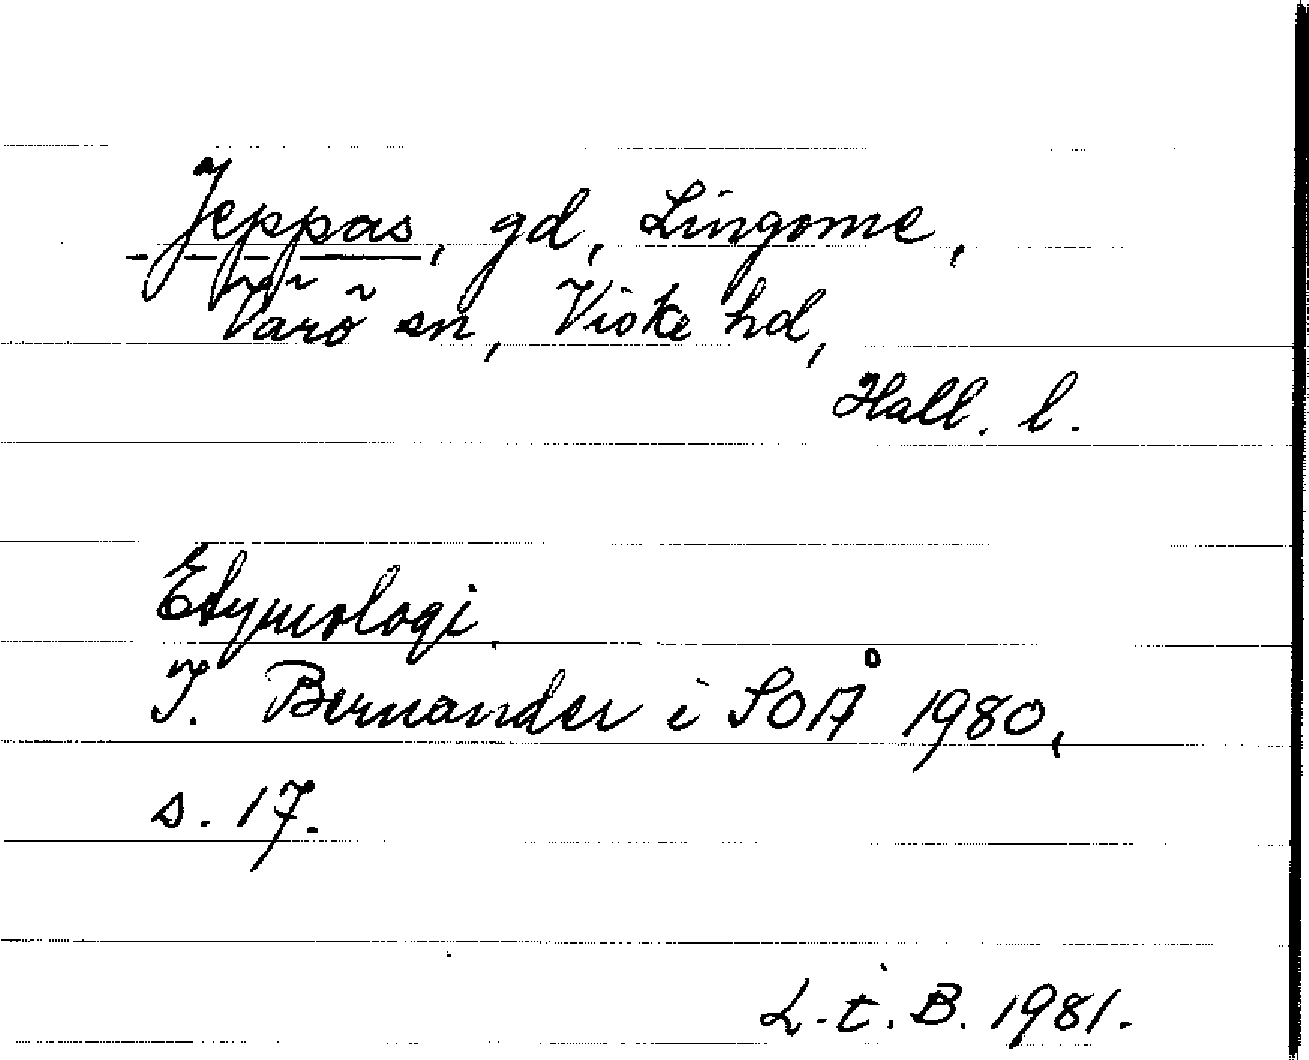 Jeppas, gd, Lingome,
Värö sn, Viske hd,
Hall. l.
Etymologi.
I. Bernander i SOÅ 1980,
s. 17.
L.t.B. 1981.